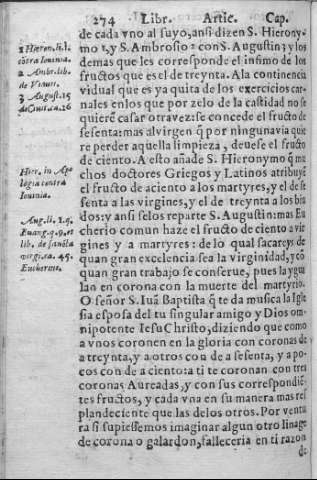 274 Libr. Artic. Cap.
de cada vno al suyo, ansi dizen S. Hierony-
mo 1, y S. Ambrosio 2 con S. Augustin 3 y los
demas que les corresponde el infimo de los
fructos que es el de treynta. A la continencia
vidual que es ya quita de los exercicios car-
nales enlos que por zelo de la castidad no se
quierẽ casar otra vez: se concede el fructo de
sesenta: mas al virgen q̃ por ninguna via quie
re perder aquella limpieza, deuese el fructo
de ciento. A esto añade S. Hieronymo q̃ mu
chos doctores Griegos y Latinos atribuyẽ
el fructo de aciento a los martyres, y el de se
senta a las virgines, y el de treynta a los biu
dos: y ansi selos reparte S. Augustin: mas Eu
cherio comun haze el fructo de ciento a vir
gines y a martyres: de lo qual sacareys de
quan gran excelencia sea la virginidad, y cõ
quan gran trabajo se conserue, pues la ygua
lan en corona con la muerte del martyrio.
O señor S. Iuã Baptista q̃ te da musica la Igle
sia esposa del tu singular amigo y Dios om-
nipotente Iesu Christo, diziendo que como
a vnos coronen en la gloria con coronas de
a treynta, y a otros con de a sesenta, y a po-
cos con de a ciento: a ti te coronan con tres
coronas Aureadas, y con sus correspondiẽ-
tes fructos, y cada vna en su manera mas res
plandeciente que las delos otros. Por ventu
ra si supiessemos imaginar algun otro linage
de corona o galardon, falleceria en ti razon
de
1 Hieron. li. 1.
cõtra Iouinia.
2 Ambr. lib.
de Viduis.
3 August. 15
de Ciuit. ca. 26
Hier. in Apo
logia contra
Iouinia.
Aug. li. 1. q.
Euang. q. 9. et
lib. de sancta
virgi. ca. 45.
Eucherius.